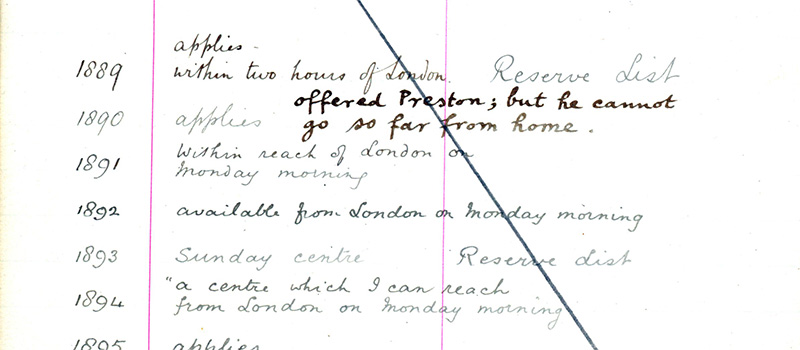 applies.
1889 within two hours of London. Reserve List
offered Preston; but he cannot
1890 applies go so far from home.
Within reach of London on
1891 Monday morning
1892 available from London on Monday morning
1893 Sunday centre Reserve List
"a centre which I can reach
1894 from London on Monday morning
1895 applies